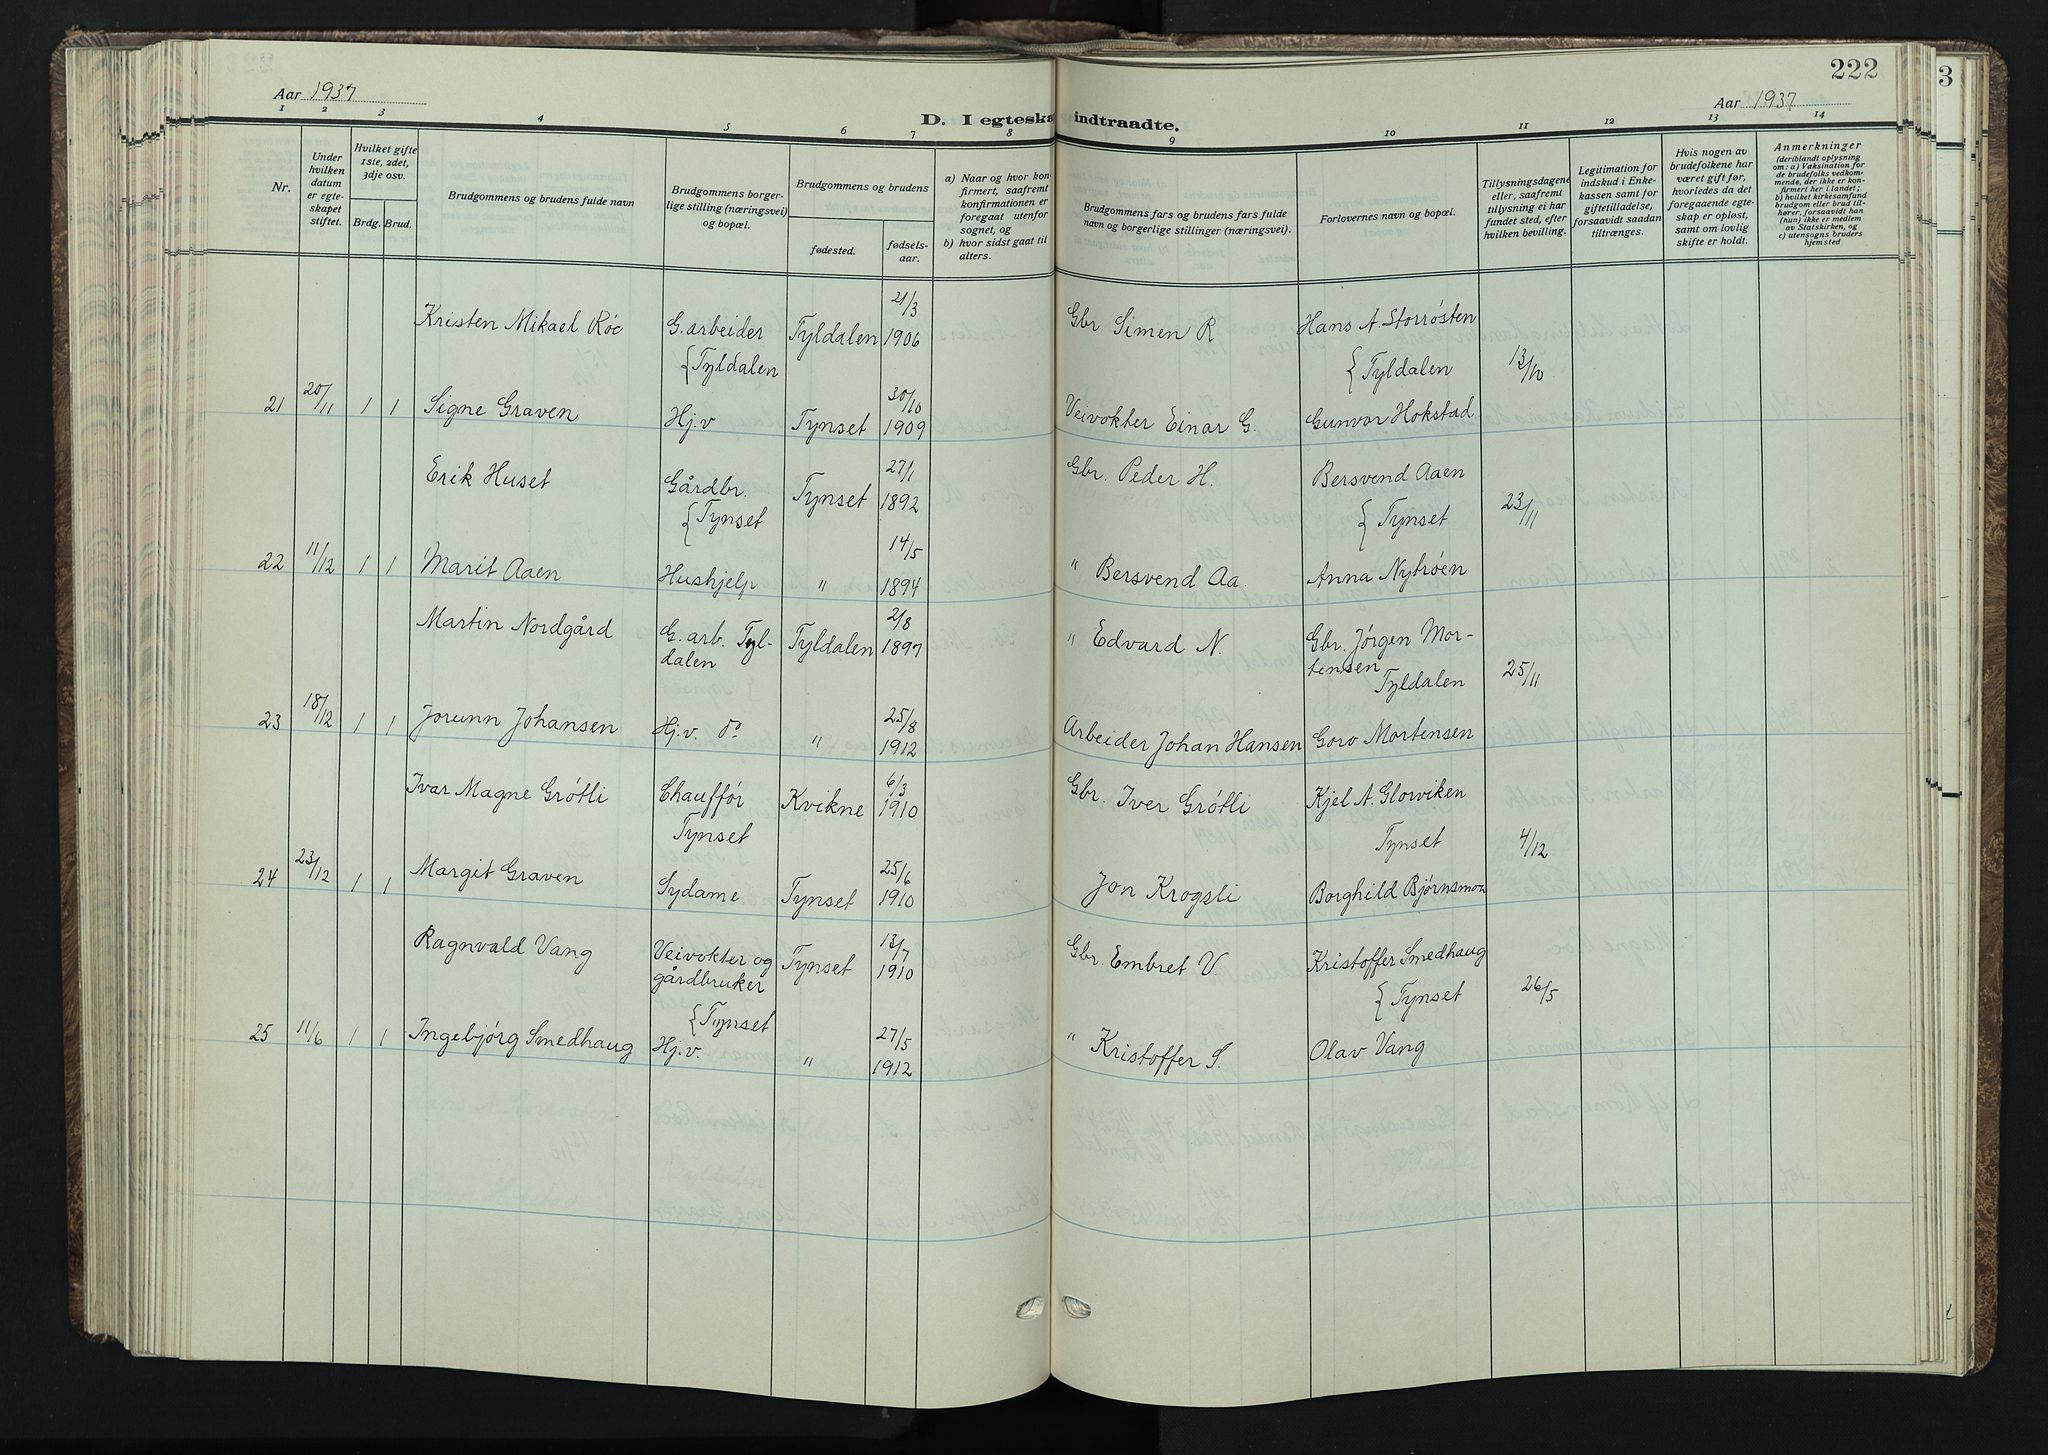 222
3
Aar 1937
Aar 1937
D. I egteska indtraadte.
1 2 3 4 5 6 7 8 9 10 11 12 13 14
Nr.
Under
hvilken
datum
er egte-
skapet
stiftet.
Hvilket gifte
1ste, 2det,
3dje osv.
Brdg. Brud.
Brudgommens og brudens fulde navn
Brudgommens borger-
lige stilling (næringsvei)
og bopæl.
Brudgommens og brudens
fødested.
fødsels-
aar.
a) Naar og hvor kon-
firmert, saafremt
konfirmationen er
foregaat utenfor
sognet, og
b) hvor sidst gaat til
alters.
Brudgommens fars og brudens fars fulde
navn og borgerlige stillinger (næringsvei).
Forlovernes navn og bopæl.
Tillysningsdagene
eller, saafremt
tillysning ei har
fundet sted, efter
hvilken bevilling.
Legitimation for
indskud i Enke-
kassen samt for
giftetilladelse,
forsaavidt saadan
tiltrænges.
Hvis nogen av
brudefolkene har
været gift før,
hvorledes da det
foregaaende egte-
skap er opløst,
samt om lovlig
skifte er holdt.
Anmerkninger
(deriblandt oplysning
om: a) Vaksination for
de brudefolks vedkom-
mende, der ikke er kon-
firmert her i landet;
b) hvilket kirkesamfund
brudgom eller brud til-
hører, forsaavidt han
(hun) ikke er medlem
av Statskirken, og
c) utensogns bruders
hjemsted
21/3
Kristen Mikael Róe G. arbeider Tyldalen 1906 Gbr Simen R Hans A. Storrøsten
{Tyldalen {Tyldalen 13/10
21 20/11 1 1 Signe Graven Hj.v Tynset 30/10 1909 Veivokter Einar G. Gunvor Hokstad
27/1
Erik Huset Gårdbr. Tynset 1892 Gbr. Peder H. Bersvend Aaen
{Tynset {Tynset 23/11
22 11/12 1 1 Marit Aaen Hushjelp " 14/5 1894 " Bersvend Aa. Anna Nytrøen
2/8
Martin Nordgård G. arb. Tyl- Tyldalen 1897 " Edvard N. Gbr. Jörgen Mor-
dalen tensen
Tyldalen 25/11
23 18/12 1 1 Jorunn Johansen Hj.v. do " 25/8 1912 Arbeider Johan Hansen Goro Mortensen
6/3
Ivar Magne Grótli Chauffór Kvikne 1910 Gbr. Iver Grótli Kjel A. Glorviken
Tynset Tynset 4/12
24 23/12 1 1 Margit Graven Sydame Tynset 25/6 1910 Jon Krogsli Borghild Bjørnsmoa
13/7
Ragnvald Vang Veivokter og Tynset 1910 Gbr. Embret V. Kristoffer Smedhaug
gårdbruker
{Tynset {Tynset 26/5
25 11/6 1 1 Ingebjórg Smedhaug Hj.v. " 27/5 1912 " Kristoffer S. Olav Vang